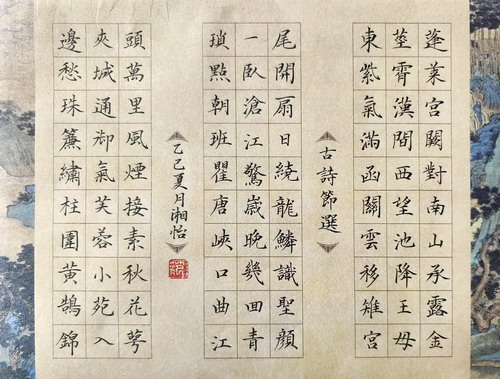 蓬萊宮闕對南山承露金
莖霄漢間西望池降王母
東紫氣滿函關雲移雉宮
古詩節選
尾開扇日繞龍鱗識聖顔
一臥滄江驚歲晚幾回青
瑣點朝班瞿唐峽口曲江
乙巳夏月湘怡
頭萬里風煙接素秋花萼
夾城通御氣芙蓉小苑入
邊愁珠簾繡柱圍黃鵠錦